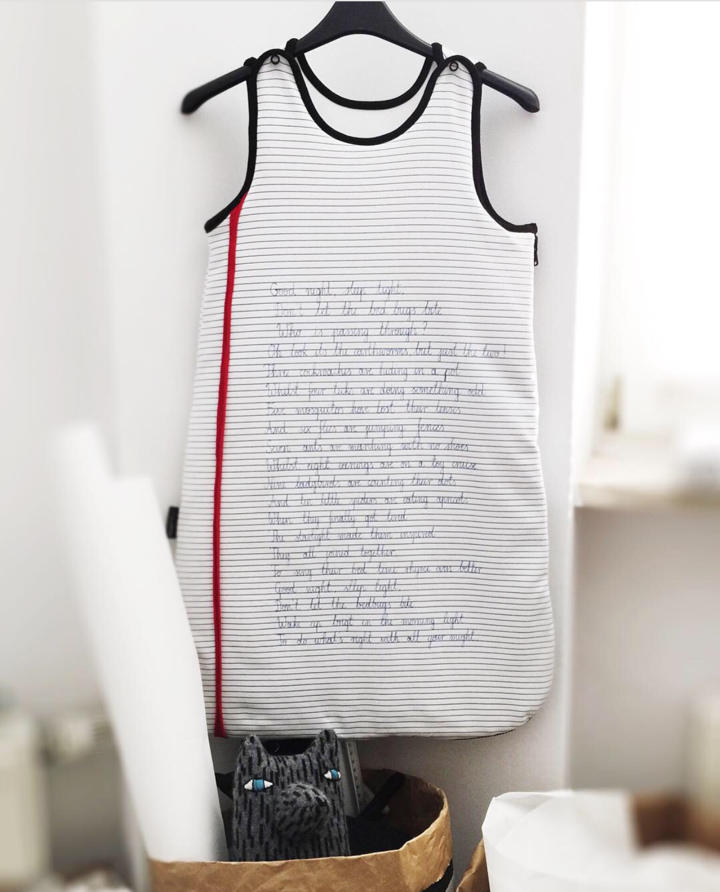 Good night, sleep tight,
Don't let the bed bugs bite
Who is passing through?
Oh look its the earthworms, but just the two!
Three cockroaches are hiding in a pot
Whilst four ticks are doing something odd
Five mosquitos have lost their lenses
And six flies are jumping fences
Seven ants are marching with no shoes
Whilst eight earwigs are on a log cruise
Nine ladybirds are counting their dots
And ten little spiders are eating apricots
When they finally got tired
The starlight made them inspired
They all joined together
To sing their bed time rhyme even better
Good night, sleep tight,
Don't let the bedbugs bite
Wake up brigt in the morning light
To do what's right with all your might.